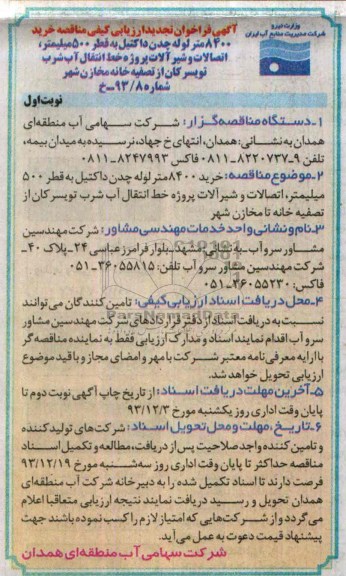 وزارت نیرو
شرکت مدیریت منابع آب ایران
آگهی فراخوان تجدید ارزیابی کیفی مناقصه خرید
۸۴۰۰ متر لوله چدن داکتیل به قطر ۵۰۰ میلیمتر،
اتصالات و شیرآلات پروژه خط انتقال آب شرب
تویسرکان از تصفیه خانه مخازن شهر
شماره ۹۳/۸-خ
نوبت اول
۱-دستگاه مناقصه گزار: شرکت سهامی آب منطقه‌ای
همدان به نشانی: همدان، انتهای خ جهاد، نرسیده به میدان بیمه،
تلفن ۹-۸۲۲۰۷۳۷-۰۸۱۱ فاکس ۸۲۴۷۹۹۳-۰۸۱۱
۲-موضوع مناقصه: خرید ۸۴۰۰ متر لوله چدن داکتیل به قطر ۵۰۰
میلیمتر، اتصالات و شیرآلات پروژه خط انتقال آب شرب تویسرکان از
تصفیه خانه تا مخازن شهر
۳-نام و نشانی واحد خدمات مهندسی مشاور: شرکت مهندسین
مشاور سرو آب-به نشانی: مشهد-بلوار فرامرز عباسی ۲۴-پلاک ۴۰-
شرکت مهندسین مشاور سرو آب تلفن: ۳۶۰۵۵۸۱۵-۰۵۱
فاکس: ۳۶۰۵۵۲۳۰-۰۵۱
۴-محل دریافت اسناد ارزیابی کیفی: تامین کنندگان می‌توانند
نسبت به دریافت اسناد از دفتر قراردادهای شرکت مهندسین مشاور
سرو آب اقدام نمایند اسناد و مدارک ارزیابی فقط به نماینده مناقصه گر
با ارایه معرفی نامه معتبر شرکت با مهر و امضای مجاز و با قید موضوع
ارزیابی تحویل خواهد شد.
۵-آخرین مهلت دریافت اسناد: از تاریخ چاپ آگهی نوبت دوم تا
پایان وقت اداری روز یکشنبه مورخ ۹۳/۱۲/۳
۶-تاریخ، مهلت و محل تحویل اسناد: شرکت‌های تولید کننده
و تامین کننده واجد صلاحیت پس از دریافت، مطالعه و تکمیل اسناد
مناقصه حداکثر تا پایان وقت اداری روز سه‌شنبه مورخ ۹۳/۱۲/۱۹
فرصت دارند تا اسناد تکمیل شده را به دبیرخانه شرکت آب منطقه‌ای
همدان تحویل و رسید دریافت نمایند نتیجه ارزیابی متعاقبا اعلام
می‌گردد و از شرکت‌هایی که امتیاز لازم را کسب نموده باشند جهت
پیشنهاد قیمت دعوت به عمل می‌آید.
شرکت سهامی آب منطقه‌ای همدان